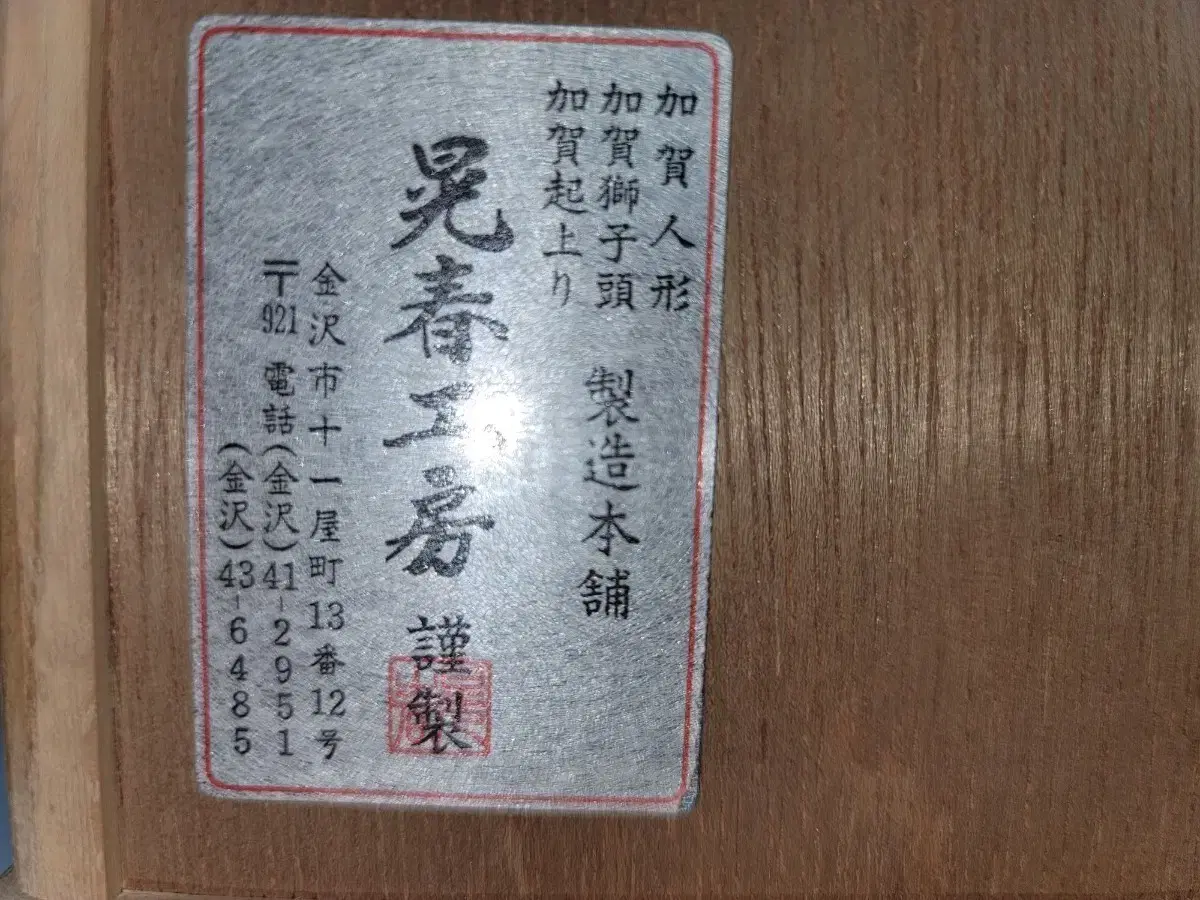 加賀人形
加賀獅子頭
加賀起上り
製造本舗
晃春工房 謹製
金沢市十一屋町13番12号
〒921 電話(金沢)41-2951
(金沢)43-6485